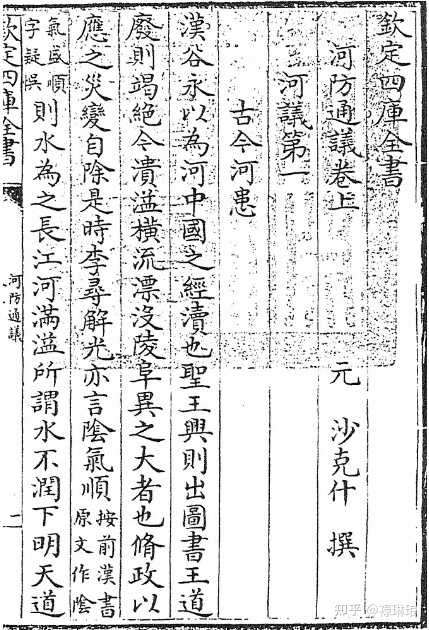 欽定四庫全書
河防通議卷上 元 沙克什 撰
河議第一
古今河患
漢谷永以為河中國之經瀆也聖王興則出圖書王道
廢則竭絶令潰溢橫流漂沒陵阜異之大者也脩政以
應之災變自除是時李尋解光亦言陰氣順按前漢書原文作陰
氣盛順字疑悞則水為之長江河滿溢所謂水不潤下明天道
欽定四庫全書
河防通議
知乎